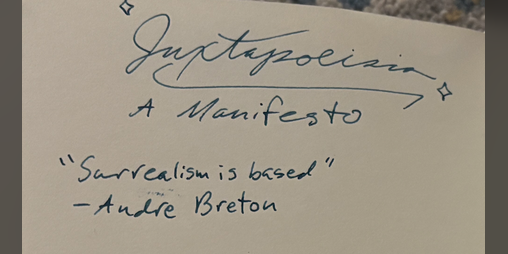 Juxtapolisia
A Manifesto
"Surrealism is based"
-Andre Breton